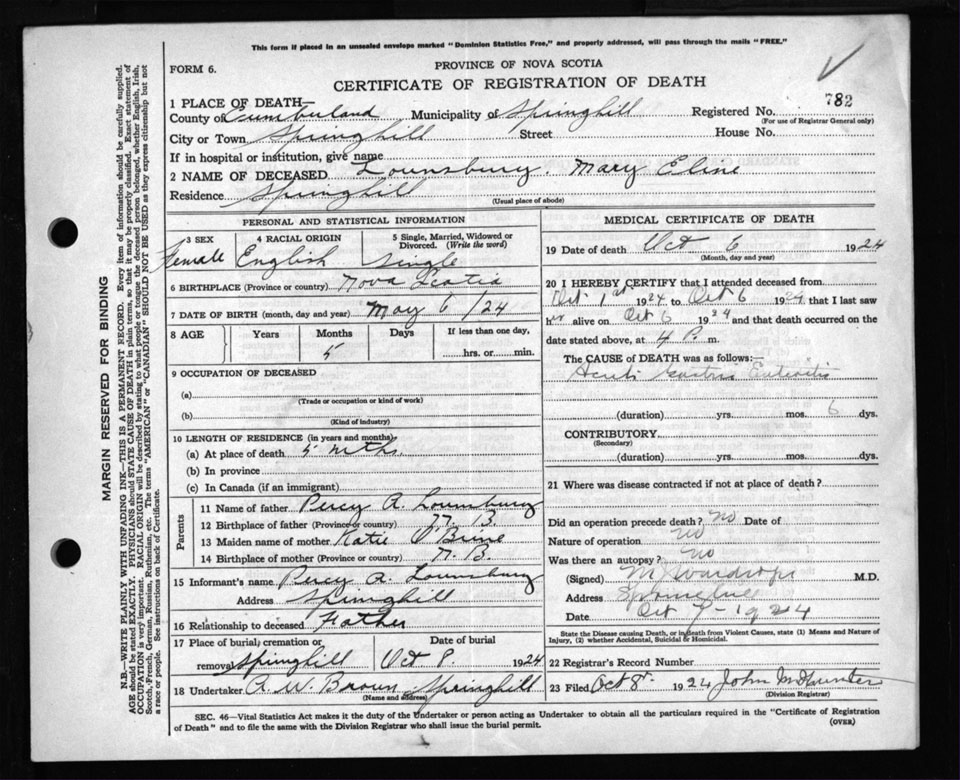 This form if placed in an unsealed envelope marked "Dominion Statistics Free," and properly addressed, will pass through the mails "FREE."
FORM 6.
PROVINCE OF NOVA SCOTIA
CERTIFICATE OF REGISTRATION OF DEATH
782
1 PLACE OF DEATH—
County of Cumberland Municipality of Springhill Registered No.
(For use of Registrar General only)
City or Town Springhill Street House No.
If in hospital or institution, give name
2 NAME OF DECEASED Lounsbury. Mary Eline
Residence Springhill
(Usual place of abode)
PERSONAL AND STATISTICAL INFORMATION
3 SEX 4 RACIAL ORIGIN 5 Single, Married, Widowed or Divorced. (Write the word)
Female English Single
6 BIRTHPLACE (Province or country) Nova Scotia
7 DATE OF BIRTH (month, day and year) May 6/24
8 AGE Years Months Days If less than one day,
5 hrs. or min.
9 OCCUPATION OF DECEASED
(a)
(Trade or occupation or kind of work)
(b)
(Kind of industry)
10 LENGTH OF RESIDENCE (in years and months)
(a) At place of death 5 mths
(b) In province
(c) In Canada (if an immigrant)
Parents
11 Name of father Percy A. Lounsbury
12 Birthplace of father (Province or country) N. B.
13 Maiden name of mother Katie O'Brine
14 Birthplace of mother (Province or country) N. B.
15 Informant's name Percy A. Lounsbury
Address Springhill
16 Relationship to deceased Father
17 Place of burial, cremation or removal Springhill Date of burial Oct 8. 1924
18 Undertaker A. W. Brown Springhill
(Name and address)
MEDICAL CERTIFICATE OF DEATH
19 Date of death Oct 6 1924
(Month, day and year)
20 I HEREBY CERTIFY that I attended deceased from
Oct 1st 1924 to Oct 6 1924 that I last saw
her alive on Oct 6 1924 and that death occurred on the
date stated above, at 4 P. m.
The CAUSE OF DEATH was as follows:—
Acute Gastro Enteritis
(duration) yrs. mos. 6 dys.
CONTRIBUTORY
(Secondary)
(duration) yrs. mos. dys.
21 Where was disease contracted if not at place of death?
Did an operation precede death? No Date of
Nature of operation No
Was there an autopsy? No
(Signed) M. Wardrope M.D.
Address Springhill
Date Oct 7 - 1924
State the Disease causing Death, or in death from Violent Causes, state (1) Means and Nature of
Injury, (2) whether Accidental, Suicidal or Homicidal.
22 Registrar's Record Number
23 Filed Oct 8th 1924 John McHunter
(Division Registrar)
SEC. 46—Vital Statistics Act makes it the duty of the Undertaker or person acting as Undertaker to obtain all the particulars required in the "Certificate of Registration
of Death" and to file the same with the Division Registrar who shall issue the burial permit.
(OVER)
MARGIN RESERVED FOR BINDING
N.B.—WRITE PLAINLY WITH UNFADING INK—THIS IS A PERMANENT RECORD. Every item of information should be carefully supplied.
AGE should be stated EXACTLY. PHYSICIANS should STATE CAUSE OF DEATH in plain terms, so that it may be properly classified. Exact statement of
OCCUPATION is very important. RACIAL ORIGIN will be described by stating to what people or tongue the deceased person belonged, whether English, Irish,
Scotch, French, German, Russian, Ruthenian, etc. The terms "AMERICAN" or "CANADIAN" SHOULD NOT BE USED as they express citizenship but not
a race or people. See instructions on back of Certificate.